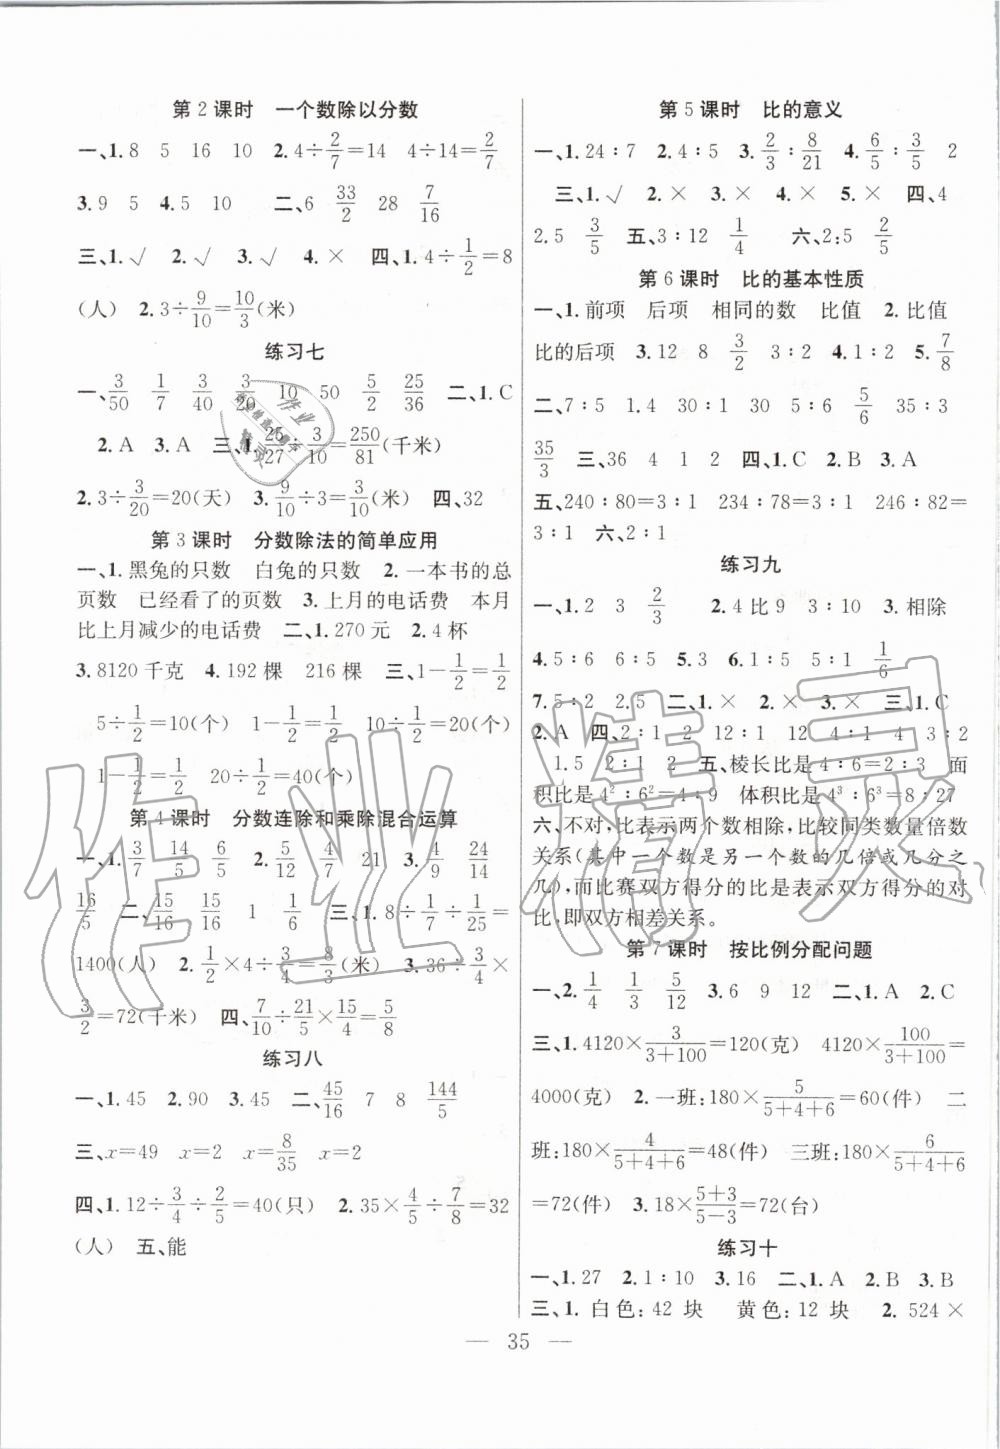 第2课时 一个数除以分数
一、1.8 5 16 10 2.4÷2/7=14 4÷14=2/7
3.9 5 4.5 10 二、6 33/2 28 7/16
三、1.√ 2.√ 3.√ 4.× 四、1.4÷1/2=8
(人) 2.3÷9/10=10/3(米)
练习七
一、3/50 1/7 3/40 3/20 10 50 5/2 25/36 二、1.C
2.A 3.A 三、1.25/27÷3/10=250/81(千米)
2.3÷3/20=20(天) 3.9/10÷3=3/10(米) 四、32
第3课时 分数除法的简单应用
一、1.黑兔的只数 白兔的只数 2.一本书的总
页数 已经看了的页数 3.上月的电话费 本月
比上月减少的电话费 二、1.270元 2.4杯
3.8120千克 4.192棵 216棵 三、1-1/2=1/2
5÷1/2=10(个) 1-1/2=1/2 10÷1/2=20(个)
1-1/2=1/2 20÷1/2=40(个)
第4课时 分数连除和乘除混合运算
一、1.3/7 14/5 6/5 2.5/12 4/7 21 3.4/9 24/14
16/5 二、15/16 15/16 1 1/6 三、1.8÷1/7÷1/25=
1400(人) 2.1/2×4÷3/4=8/3(米) 3.36÷3/4×
3/2=72(千米) 四、7/10÷21/5×15/4=5/8
练习八
一、1.45 2.90 3.45 二、45/16 7 8 144/5
三、x=49 x=2 x=8/35 x=2
四、1.12÷3/4÷2/5=40(只) 2.35×4/5÷7/8=32
(人) 五、能
第5课时 比的意义
一、1.24∶7 2.4∶5 3.2/3∶8/21 4.6/5∶3/5 2
三、1.√ 2.× 3.× 4.× 5.× 四、4
2.5 3/5 五、3∶12 1/4 六、2:5 2/5
第6课时 比的基本性质
一、1.前项 后项 相同的数 比值 2.比值
比的后项 3.12 8 3/2 3∶2 4.1∶2 5.7/8
二、7∶5 1.4 30∶1 30 5∶6 5/6 35∶3
35/3 三、36 4 1 2 四、1.C 2.B 3.A
五、240∶80=3∶1 234∶78=3∶1 246∶82=
3∶1 六、2∶1
练习九
一、1.2 3 2/3 2.4比9 3∶10 3.相除
4.5∶6 5∶6 5.3 6.1∶5 5∶1 1/6
7.5∶2 2.5 二、1.× 2.× 3.× 三、1.C
2.A 四、2∶1 2 12∶1 12 4∶1 4 3∶2
1.5 2∶1 2 五、棱长比是4∶6=2∶3 面
积比是4²∶6²=4∶9 体积比是4³∶6³=8∶27
六、不对,比表示两个数相除,比较同类数量倍数
关系(其中一个数是另一个数的几倍或几分之
几),而比赛双方得分的比是表示双方得分的对
比,即双方相差关系。
第7课时 按比例分配问题
一、2.1/4 1/3 5/12 3.6 9 12 二、1.A 2.C
三、1.4120×3/(3+100)=120(克) 4120×100/(3+100)=
4000(克) 2.一班:180×5/(5+4+6)=60(件) 二
班:180×4/(5+4+6)=48(件) 三班:180×6/(5+4+6)
=72(件) 3.18×(5+3)/(5-3)=72(台)
练习十
一、1.27 2.1∶10 3.16 二、1.A 2.B 3.B
三、1.白色:42块 黄色:12块 2.524×
— 35 —
作业精灵